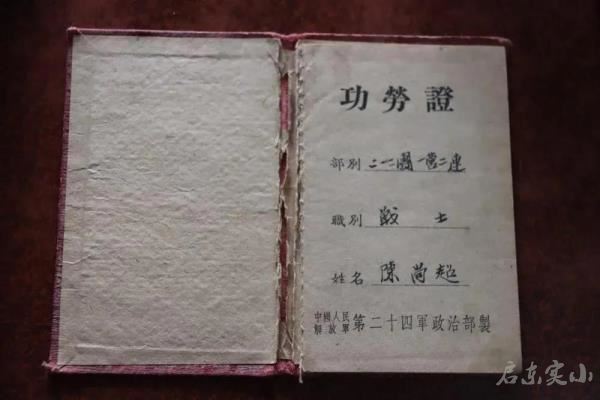 功勞證
部別 二一團一营二連
職別 战士
姓名 陳尚超
中國人民解放軍 第二十四軍政治部製
启东实小